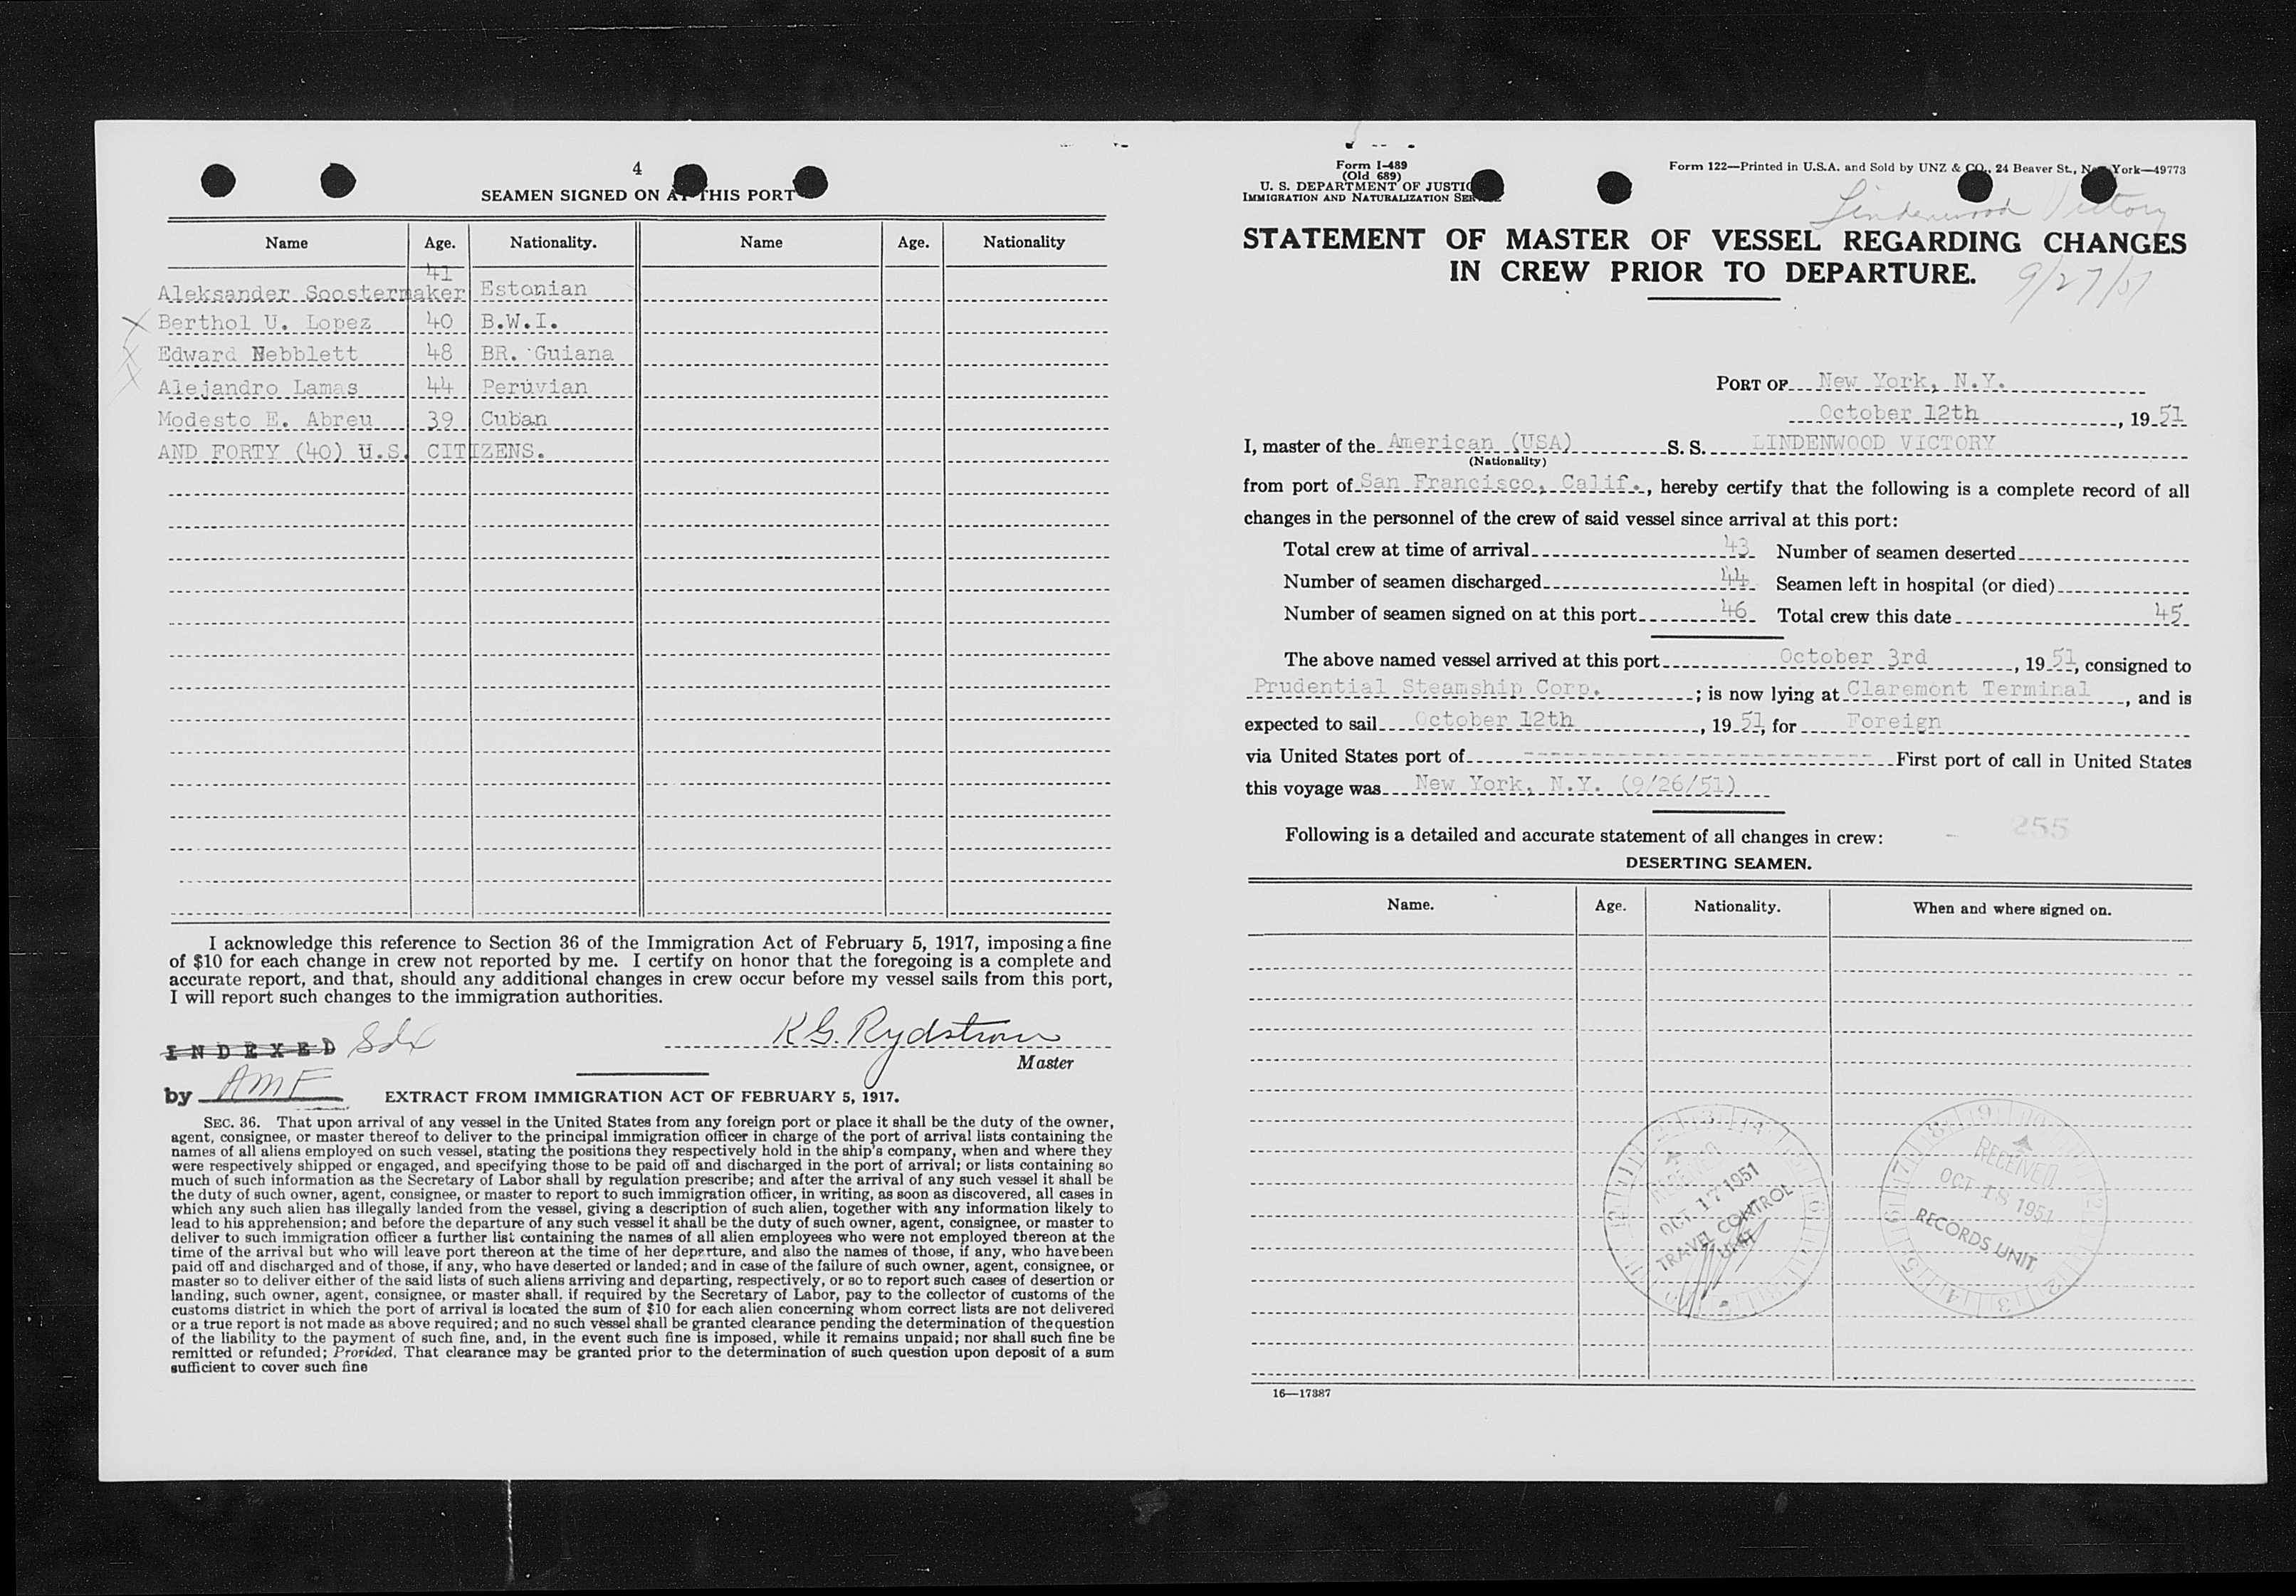 4
SEAMEN SIGNED ON AT THIS PORT
Name Age. Nationality. Name Age. Nationality
41
Aleksander Soostermaker Estonian
Berthol U. Lopez 40 B.W.I.
Edward Nebblett 48 BR. Guiana
Alejandro Lamas 44 Peruvian
Modesto E. Abreu 39 Cuban
AND FORTY (40) U.S. CITIZENS.
I acknowledge this reference to Section 36 of the Immigration Act of February 5, 1917, imposing a fine
of $10 for each change in crew not reported by me. I certify on honor that the foregoing is a complete and
accurate report, and that, should any additional changes in crew occur before my vessel sails from this port,
I will report such changes to the immigration authorities.
INDEXED
K G. Rydstrom
Master
by AMF
EXTRACT FROM IMMIGRATION ACT OF FEBRUARY 5, 1917.
SEC. 36. That upon arrival of any vessel in the United States from any foreign port or place it shall be the duty of the owner,
agent, consignee, or master thereof to deliver to the principal immigration officer in charge of the port of arrival lists containing the
names of all aliens employed on such vessel, stating the positions they respectively hold in the ship's company, when and where they
were respectively shipped or engaged, and specifying those to be paid off and discharged in the port of arrival; or lists containing so
much of such information as the Secretary of Labor shall by regulation prescribe; and after the arrival of any such vessel it shall be
the duty of such owner, agent, consignee, or master to report to such immigration officer, in writing, as soon as discovered, all cases in
which any such alien has illegally landed from the vessel, giving a description of such alien, together with any information likely to
lead to his apprehension; and before the departure of any such vessel it shall be the duty of such owner, agent, consignee, or master to
deliver to such immigration officer a further list containing the names of all alien employees who were not employed thereon at the
time of the arrival but who will leave port thereon at the time of her departure, and also the names of those, if any, who have been
paid off and discharged and of those, if any, who have deserted or landed; and in case of the failure of such owner, agent, consignee, or
master so to deliver either of the said lists of such aliens arriving and departing, respectively, or so to report such cases of desertion or
landing, such owner, agent, consignee, or master shall, if required by the Secretary of Labor, pay to the collector of customs of the
customs district in which the port of arrival is located the sum of $10 for each alien concerning whom correct lists are not delivered
or a true report is not made as above required; and no such vessel shall be granted clearance pending the determination of the question
of the liability to the payment of such fine, and, in the event such fine is imposed, while it remains unpaid; nor shall such fine be
remitted or refunded; Provided, That clearance may be granted prior to the determination of such question upon deposit of a sum
sufficient to cover such fine
Form I-489
(Old 689)
U. S. DEPARTMENT OF JUSTICE
IMMIGRATION AND NATURALIZATION SERVICE
Form 122—Printed in U.S.A. and Sold by UNZ & CO., 24 Beaver St., New York—49773
Lindenwood Victory
STATEMENT OF MASTER OF VESSEL REGARDING CHANGES
IN CREW PRIOR TO DEPARTURE.
9/27/51
PORT OF New York, N.Y.
October 12th, 19 51
I, master of the American (USA) S. S. LINDENWOOD VICTORY
(Nationality)
from port of San Francisco, Calif., hereby certify that the following is a complete record of all
changes in the personnel of the crew of said vessel since arrival at this port:
Total crew at time of arrival 43 Number of seamen deserted
Number of seamen discharged 44 Seamen left in hospital (or died)
Number of seamen signed on at this port 46 Total crew this date 45
The above named vessel arrived at this port October 3rd, 19 51, consigned to
Prudential Steamship Corp. ; is now lying at Claremont Terminal, and is
expected to sail October 12th, 19 51, for Foreign
via United States port of ---------- First port of call in United States
this voyage was New York, N.Y. (9/26/51)
255
Following is a detailed and accurate statement of all changes in crew:
DESERTING SEAMEN.
Name. Age. Nationality. When and where signed on.
RECEIVED
OCT 17 1951
TRAVEL CONTROL
UNIT
RECEIVED
OCT 18 1951
RECORDS UNIT
16—17387